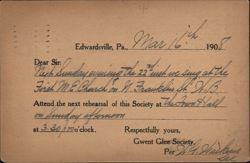 Edwardsville, Pa., Mar 16th 1908
Dear Sir:
Next Sunday evening the 22nd inst we sing at the
First M.E. Church on N. Franklin St. W.B.
Attend the next rehearsal of this Society at
on Sunday afternoon
at 3-30 PM o'clock. Respectfully yours,
Gwent Glee Society.
Per